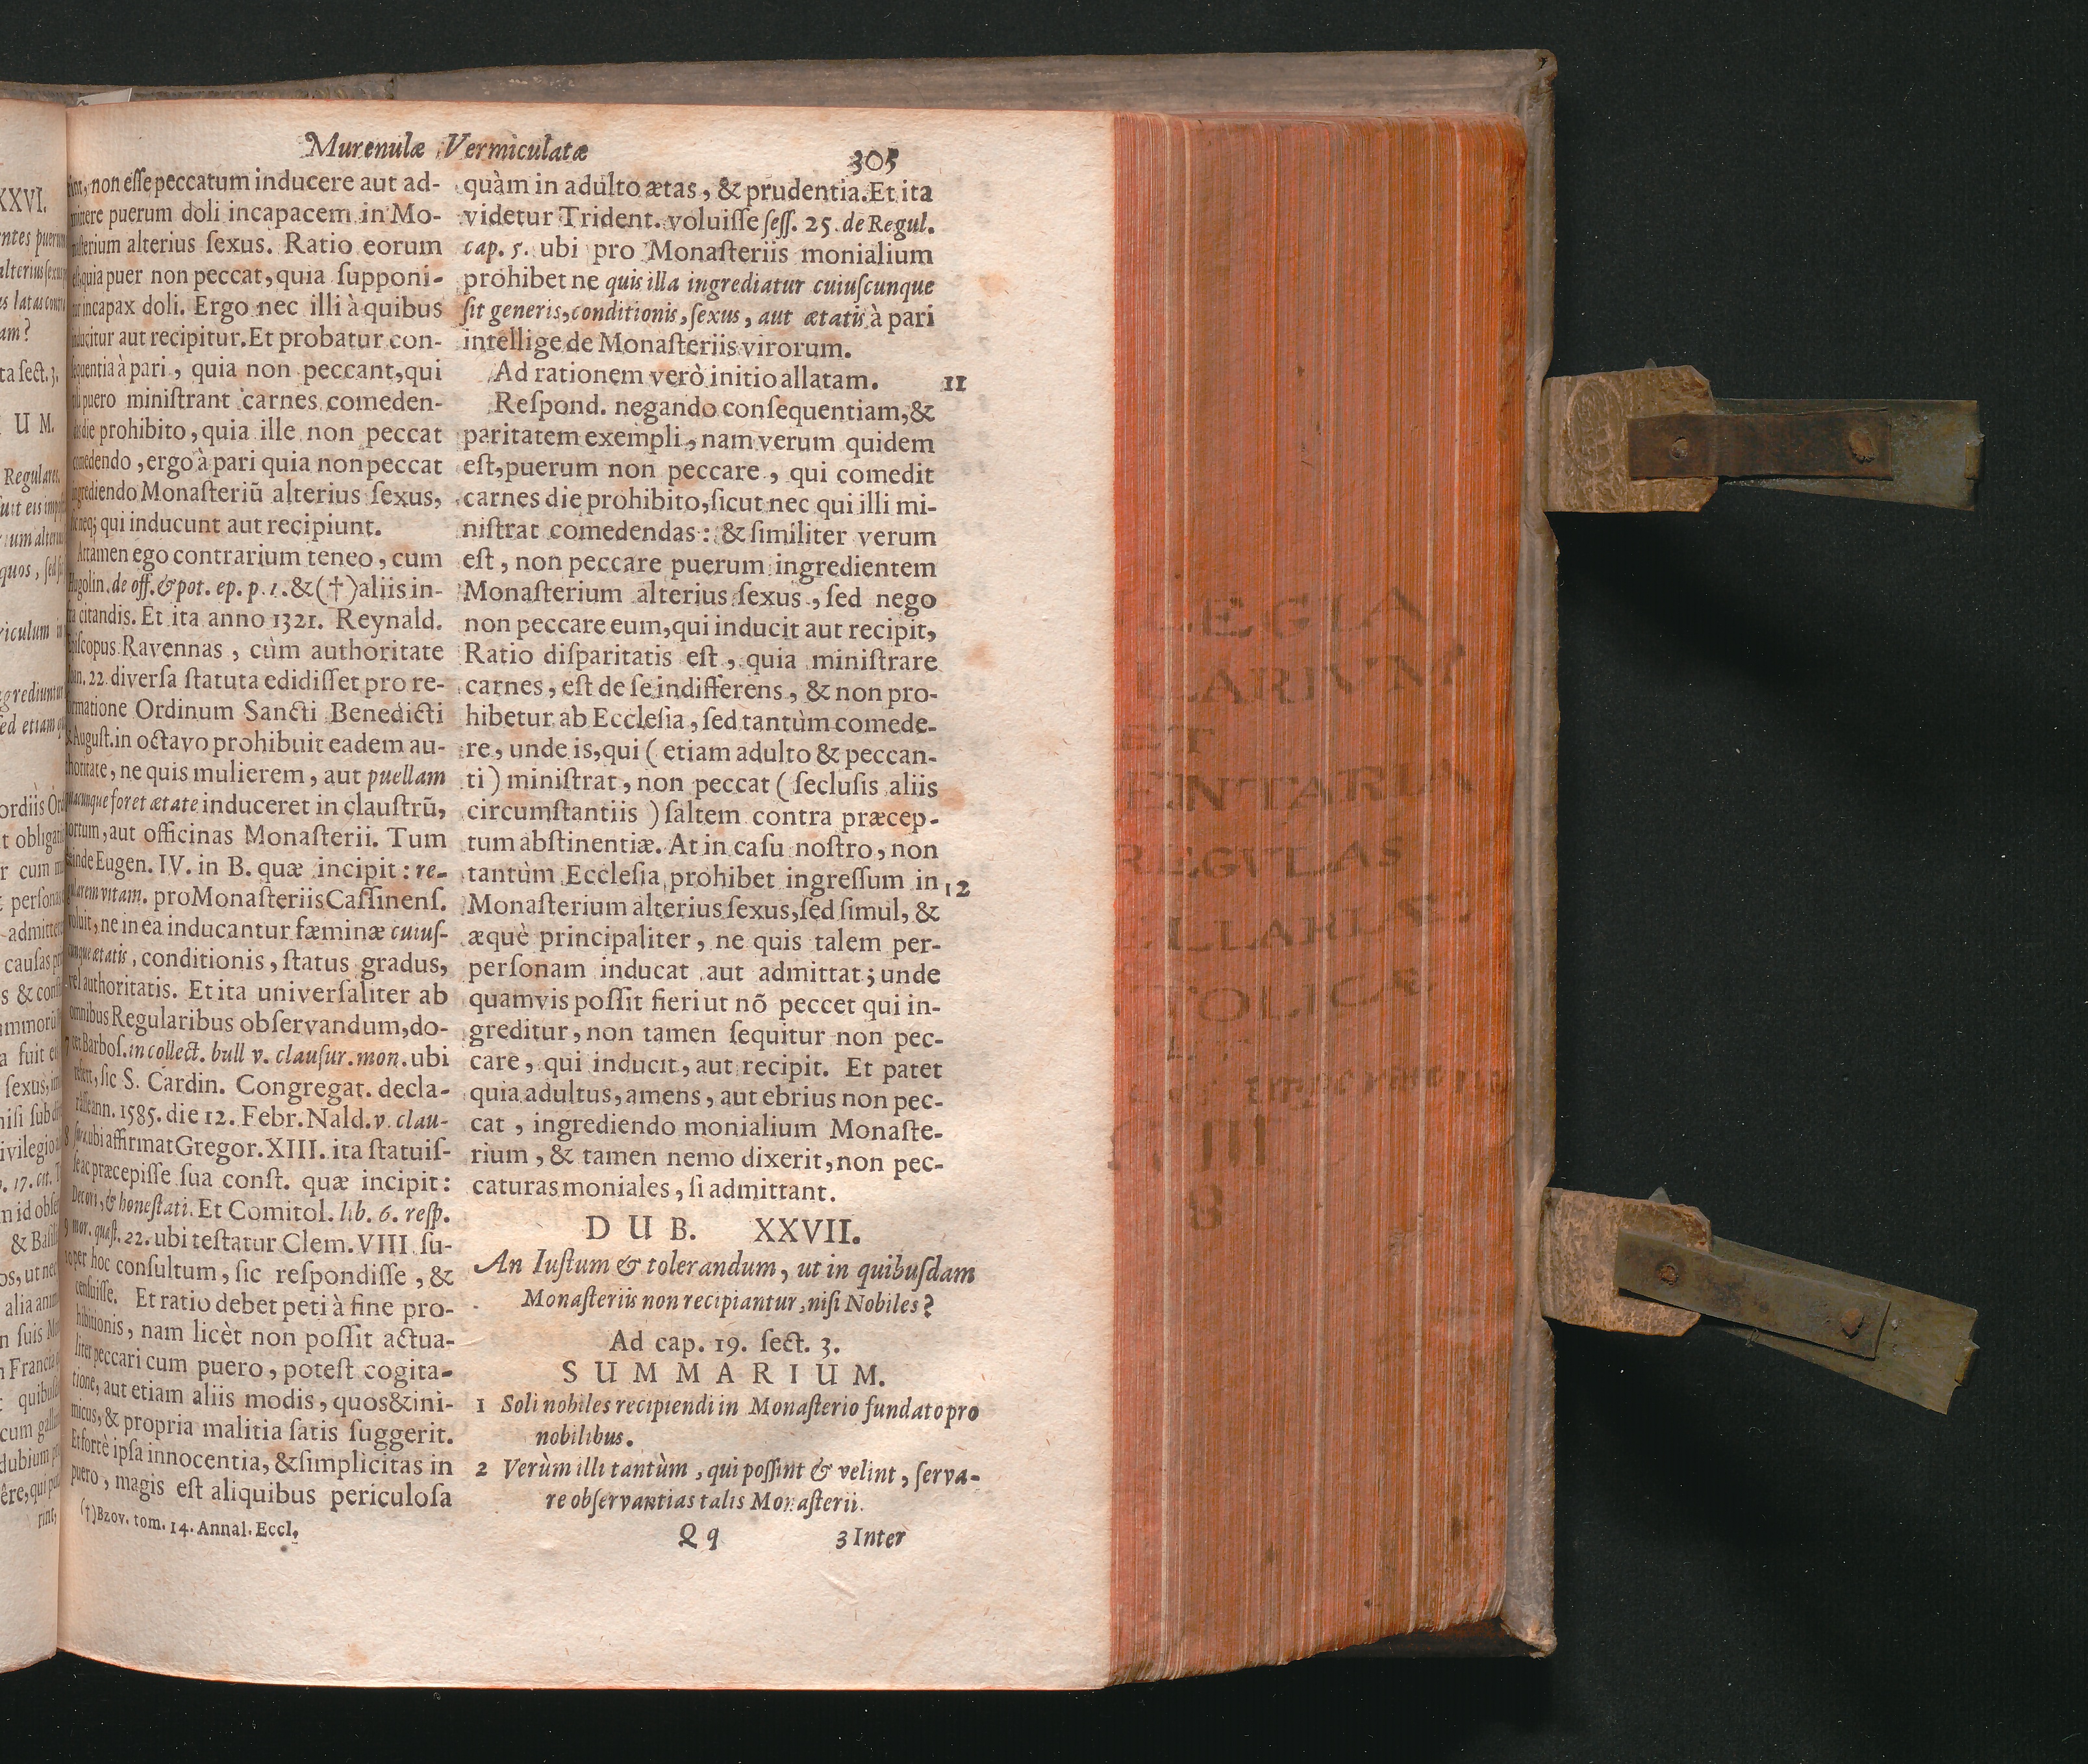 Murenulæ Vermiculatæ 305
rint, non eſſe peccatum inducere aut ad-
mittere puerum doli incapacem in Mo-
naſterium alterius ſexus. Ratio eorum
eſt, quia puer non peccat, quia ſupponi-
tur incapax doli. Ergo nec illi à quibus
inducitur aut recipitur. Et probatur con-
ſequentia à pari, quia non peccant, qui
puero miniſtrant carnes comeden-
das die prohibito, quia ille non peccat
comedendo, ergo à pari quia non peccat
ingrediendo Monaſteriũ alterius ſexus,
neq; qui inducunt aut recipiunt.
Attamen ego contrarium teneo, cum
Hugolin. de off. & pot. ep. p. 1. & (†) aliis in-
fra citandis. Et ita anno 1321. Reynald.
Epiſcopus Ravennas, cùm authoritate
Ioan. 22. diverſa ſtatuta edidiſſet pro re-
formatione Ordinum Sancti Benedicti
& Auguſt. in octavo prohibuit eadem au-
thoritate, ne quis mulierem, aut puellam
quacunque foret ætate induceret in clauſtrũ,
hortum, aut officinas Monaſterii. Tum
deinde Eugen. IV. in B. quæ incipit: re-
gularem vitam. pro Monaſteriis Caſſinenſ.
voluit, ne in ea inducantur fæminæ cuiuſ-
cunque ætatis, conditionis, ſtatus gradus,
vel authoritatis. Et ita univerſaliter ab
omnibus Regularibus obſervandum, do-
7 cet Barboſ. in collect. bull v. clauſur. mon. ubi
refert, ſic S. Cardin. Congregat. decla-
raſſe ann. 1585. die 12. Febr. Nald. v. clau-
8 ſura. ubi affirmat Gregor. XIII. ita ſtatuiſ-
ſe ac præcepiſſe ſua conſt. quæ incipit:
Decori, & honeſtati. Et Comitol. lib. 6. reſp.
9 mor. quæſt. 22. ubi teſtatur Clem. VIII ſu-
10 per hoc conſultum, ſic reſpondiſſe, &
cenſuiſſe. Et ratio debet peti à fine pro-
hibitionis, nam licèt non poſſit actua-
liter peccari cum puero, poteſt cogita-
tione, aut etiam aliis modis, quos & ini-
micus, & propria malitia ſatis ſuggerit.
Et fortè ipſa innocentia, & ſimplicitas in
puero, magis eſt aliquibus periculoſa
(†) Bzov. tom. 14. Annal. Eccl.
quàm in adulto ætas, & prudentia. Et ita
videtur Trident. voluiſſe ſeſſ. 25. de Regul.
cap. 5. ubi pro Monaſteriis monialium
prohibet ne quis illa ingrediatur cuiuſcunque
ſit generis, conditionis, ſexus, aut ætatis à pari
intellige de Monaſteriis virorum.
Ad rationem verò initio allatam. 11
Reſpond. negando conſequentiam, &
paritatem exempli, nam verum quidem
eſt, puerum non peccare, qui comedit
carnes die prohibito, ſicut nec qui illi mi-
niſtrat comedendas: & ſimiliter verum
eſt, non peccare puerum ingredientem
Monaſterium alterius ſexus, ſed nego
non peccare eum, qui inducit aut recipit,
Ratio diſparitatis eſt, quia miniſtrare
carnes, eſt de ſe indifferens, & non pro-
hibetur ab Eccleſia, ſed tantùm comede-
re, unde is, qui ( etiam adulto & peccan-
ti ) miniſtrat, non peccat ( ſecluſis aliis
circumſtantiis ) ſaltem contra præcep-
tum abſtinentiæ. At in caſu noſtro, non
tantùm Eccleſia prohibet ingreſſum in 12
Monaſterium alterius ſexus, ſed ſimul, &
æquè principaliter, ne quis talem per-
perſonam inducat aut admittat; unde
quamvis poſſit fieri ut nõ peccet qui in-
greditur, non tamen ſequitur non pec-
care, qui inducit, aut recipit. Et patet
quia adultus, amens, aut ebrius non pec-
cat, ingrediendo monialium Monaſte-
rium, & tamen nemo dixerit, non pec-
caturas moniales, ſi admittant.
DUB. XXVII.
An Iuſtum & tolerandum, ut in quibuſdam
Monaſteriis non recipiantur, niſi Nobiles?
Ad cap. 19. ſect. 3.
SUMMARIUM.
1 Soli nobiles recipiendi in Monaſterio fundato pro
nobilibus.
2 Verùm illi tantùm, qui poſſint & velint, ſerva-
re obſervantias talis Monaſterii.
Qq 3 Inter
LEGIA
LARIVM
ET
ENTARIA
REGVLAS
LLARIÆ
TOLICÆ
III
8